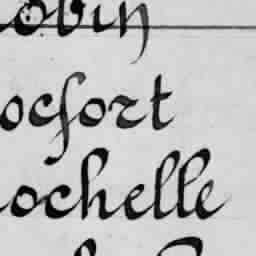 obin
ocfort
ochelle